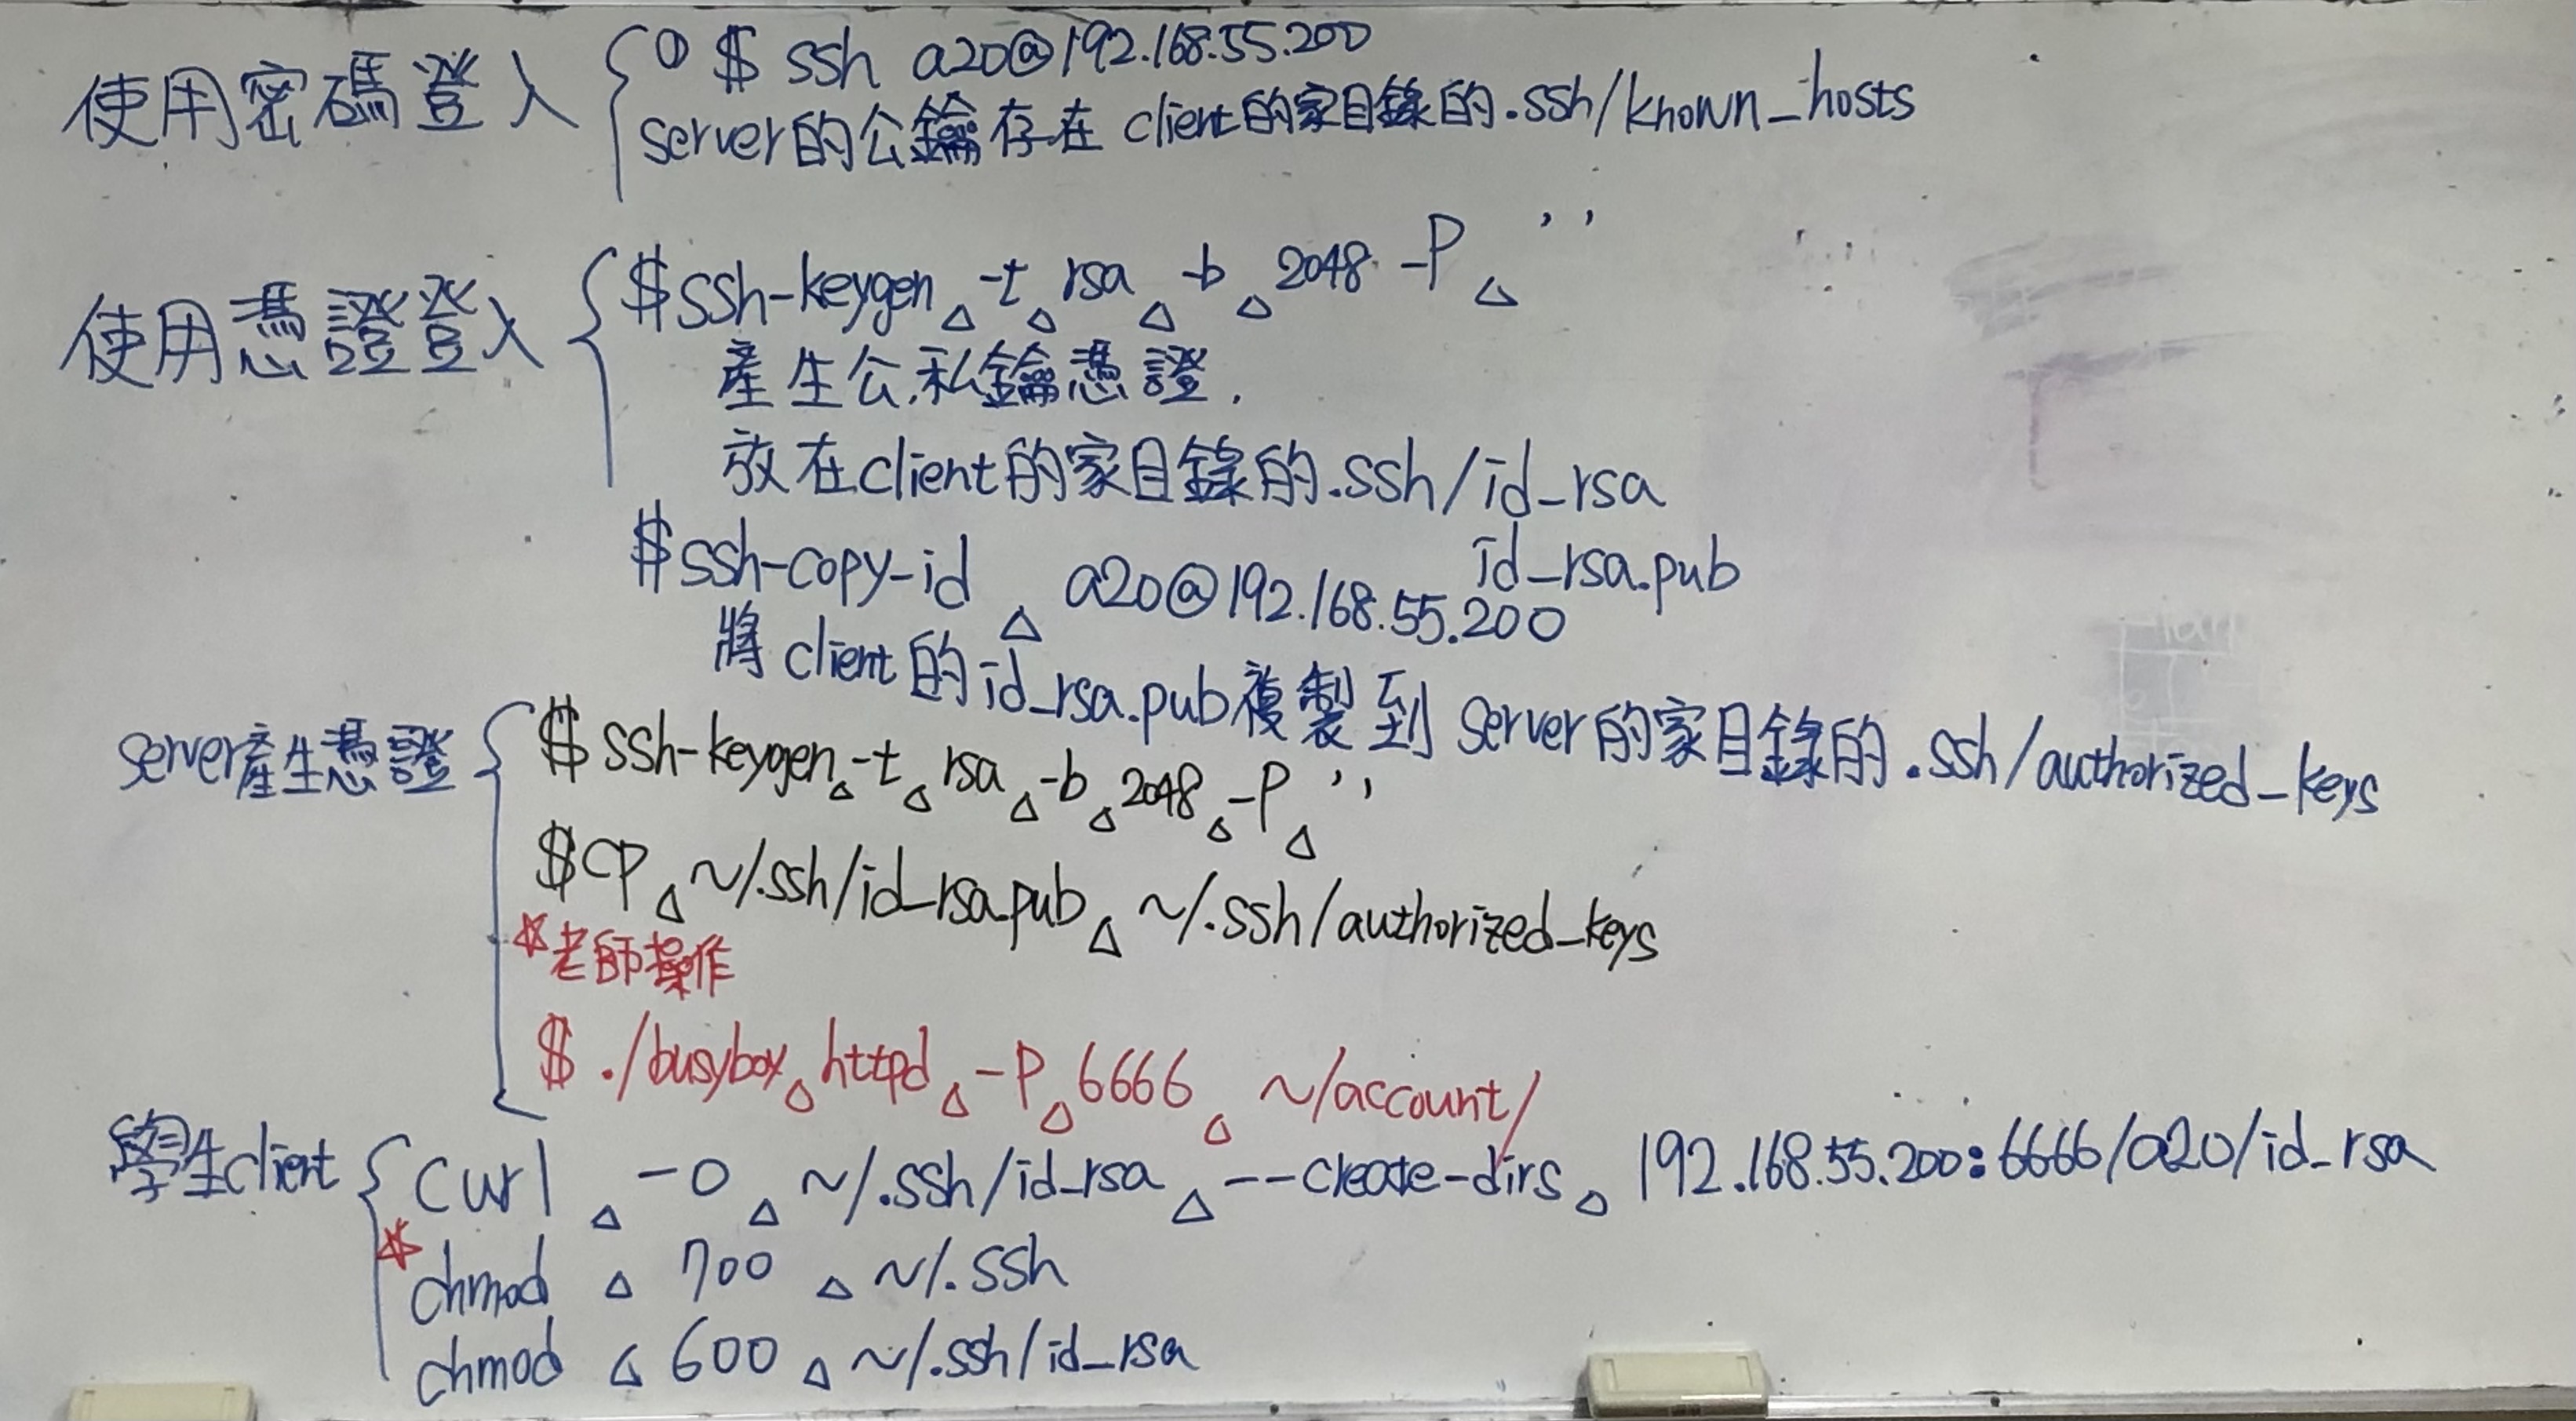 使用密碼登入
① $ ssh a20@192.168.55.200
server的公鑰存在 client的家目錄的.ssh/known_hosts
使用憑證登入
$ssh-keygen△-t△rsa△-b△2048 -P△''
產生公.私鑰憑證.
放在client的家目錄的.ssh/id_rsa
id_rsa.pub
$ssh-copy-id△a20@192.168.55.200
將client的id_rsa.pub複製到 server的家目錄的.ssh/authorized_keys
server產生憑證
$ssh-keygen△-t△rsa△-b△2048△-P△''
$cp△~/.ssh/id_rsa.pub△~/.ssh/authorized_keys
☆老師操作
$ ./busybox△httpd△-P△6666△~/account/
學生client
curl△-o△~/.ssh/id_rsa△--create-dirs△192.168.55.200:6666/a20/id_rsa
☆chmod△700△~/.ssh
chmod△600△~/.ssh/id_rsa